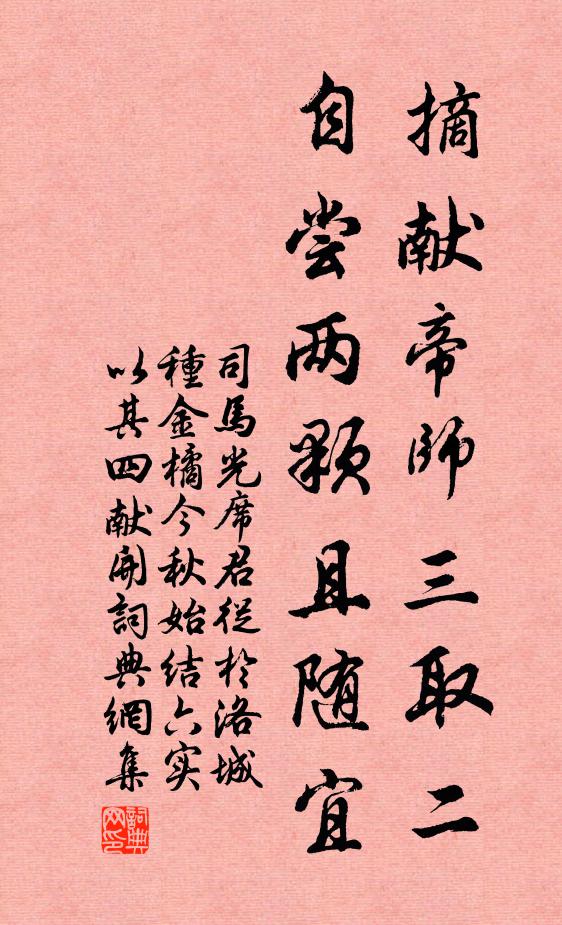 摘献帝师三取二
自尝两颗且随宜
司馬光席君從於洛城
種金橘今秋始结六实
以其四献開詞典網集
詞典网印